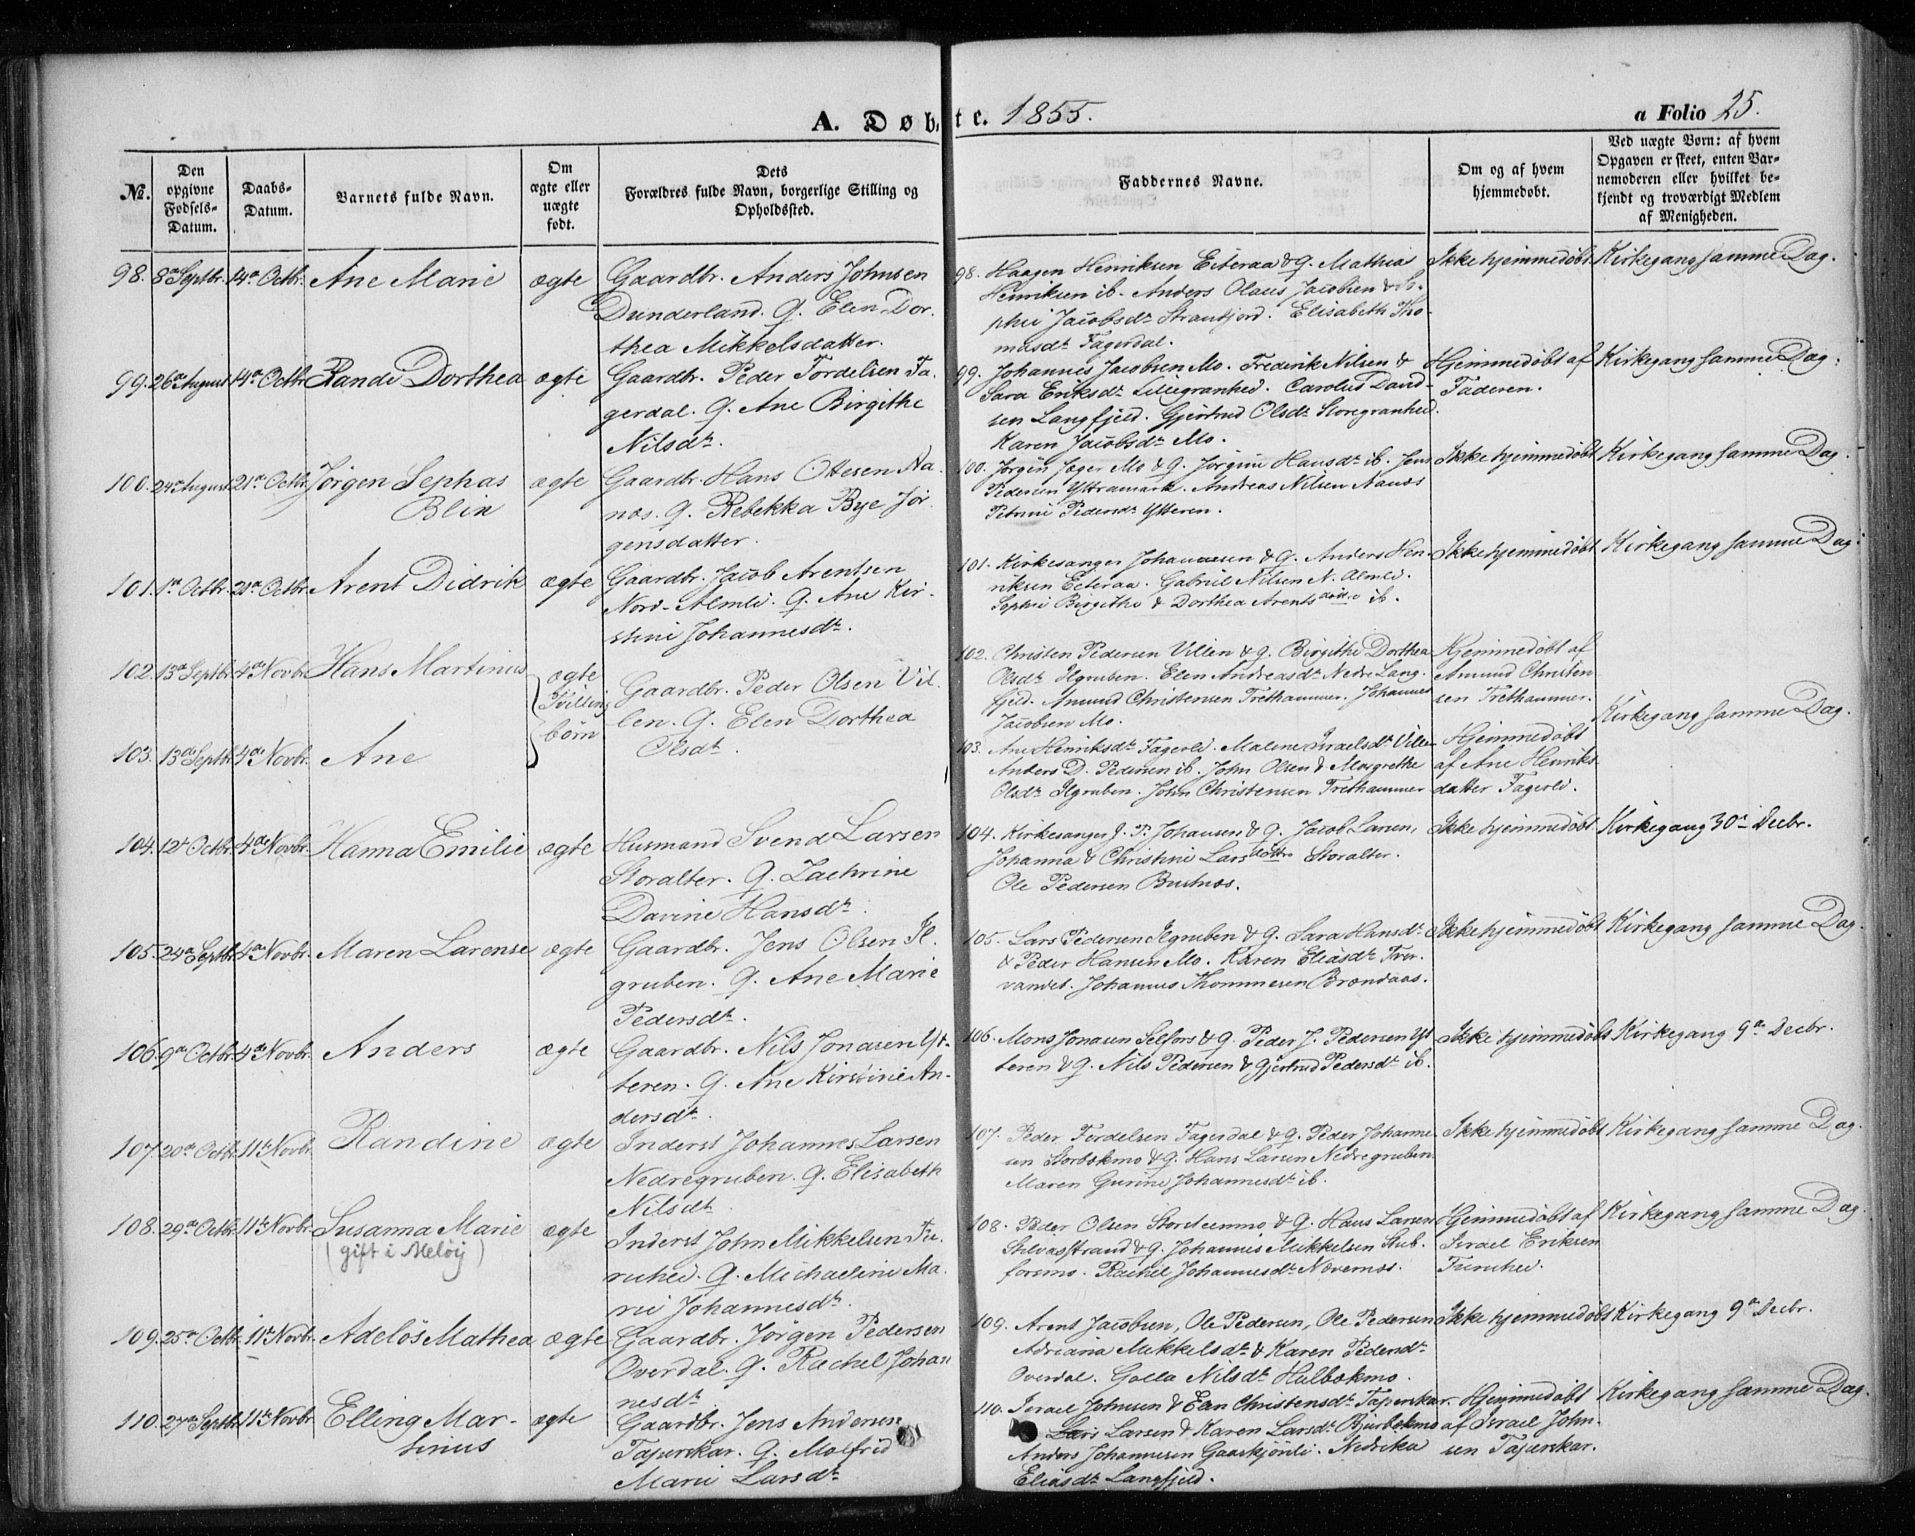 A. Døbte. 1855.
a Folio 25.
№.
Den opgivne Fødsels-Datum.
Daabs-Datum.
Barnets fulde Navn.
Om ægte eller uægte født.
Dets Forældres fulde Navn, borgerlige Stilling og Opholdssted.
Faddernes Navne.
Om og af hvem hjemmedøbt.
Ved uægte Børn: af hvem Opgaven er skeet, enten Barnemoderen eller hvilket bekjendt og troværdigt Medlem af Menigheden.
98. 8de Septbr. 14de Octbr. Ane Marie ægte
Gaardbr. Anders Johnsen
Dunderland. G. Elen Dor-
thea Mikkelsdatter.
98. Haagen Henriksen Eiteraa & G. Mathia
Henriksen ib. Anders Olaus Jacobsen & So-
phie Jacobsdr Strantjord. Elisabeth Tho-
masdr Fagerdal.
Ikke hjemmedøbt
Kirkegang samme Dag.
99. 26de August 14de Octbr. Rande Dorthea ægte
Gaardbr. Peder Tordelsen Fa-
gerdal. G. Ane Birgithe
Nilsdr.
99. Johannes Jacobsen Mo. Frederik Nilsen &
Sara Eriksdr Lillegranhei. Carolus David-
sen Langfjeld. Gjertrud Olsdr Storegranhei.
Karen Jacobsdr Mo.
Hjemmedøbt af
Faderen.
Kirkegang samme Dag.
100. 24de August 21de Octbr Jørgen Sephas
Blix
ægte
Gaardbr. Hans Ottesen Na-
nes. G. Rebekka Bye Jør-
gensdatter.
100. Jørgen Jæger Mo & G. Jørgine Hansdr ib. Jens
Pedersen Yttramark. Andreas Nilsen Aanæs
Petrine Pedersdr Ytteren.
Ikke hjemmedøbt
Kirkegang samme Dag.
101. 1de Octbr. 21de Octbr. Arent Didrik ægte
Gaardbr. Jacob Arentsen
Nord-Almli. G. Ane Kir-
stine Johannesdr.
101. Kirkesanger Johannesen & G. Anders Hen-
riksen Eiteraa. Gabriel Nilsen N. Almli.
Sophie Birgithe & Dorthea Arentsdøttre ib.
Ikke hjemmedøbt
Kirkegang samme Dag.
102. 13de Septbr. 4de Novbr. Hans Martinus ægte
Tvilling
børn
Gaardbr. Peder Olsen Vil-
len. G. Elen Dorthea
Olsdr.
102. Christen Pedersen Villen & G. Birgithe Dorthea
Olsdr Ilgruben. Elen Andreasdr Nedre Lang-
fjeld. Amund Christensen Trethammer. Johannes
Jacobsen Mo.
Hjemmedøbt af
Amund Christen
sen Trethammer.
Kirkegang samme Dag.
103. 13de Septbr. 4de Novbr. Ane
103. Ane Henriksdr Fagerli. Malene Israelsdr Villen
Anders D. Pedersen ib. John Olsen & Margrethe
Olsdr Ilgruben. John Christensen Trethammer
Hjemmedøbt
af Ane Henriks
datter Fagerli.
104. 12te Octbr. 4de Novbr. Hanna Emilie ægte
Husmand Svend Larsen
Storalter. G. Zachrine
Davine Hansdr.
104. Kirkesanger J. P. Johansen & G. Jacob Larsen,
Johanna & Christine Larsdøttre Storalter.
Ole Pedersen Bustnæs.
Ikke hjemmedøbt
Kirkegang 30de Decbr.
105. 24de Septbr. 4de Novbr. Maren Larense ægte
Gaardbr. Jens Olsen Il-
gruben. G. Ane Marie
Pedersdr.
105. Lars Pedersen Ilgruben & G. Sara Hansdr
& Peder Hansen Mo. Karen Eliasdr Tver-
vandet. Johannes Thommesen Brændaas.
Ikke hjemmedøbt
Kirkegang samme Dag.
106. 9de Octbr. 4de Novbr. Anders ægte
Gaardbr. Nils Jonasen Yt-
teren. G. Ane Kirstine An-
dersdr.
106. Mons Jonasen Selfors & G. Peder J. Pedersen Yt
teren & G. Nils Pedersen & Gjertrud Pedersdr ib.
Ikke hjemmedøbt
Kirkegang 9de Decbr.
107. 20de Octbr. 11te Novbr. Randine ægte
Inderst Johannes Larsen
Nedregruben. G. Elisabeth
Nilsdr.
107. Peder Tordelsen Fagerdal & G. Peder Johanne-
sen Storbokmo & G. Hans Larsen Nedregruben
Maren Gurine Johannesdr ib.
Ikke hjemmedøbt
Kirkegang samme Dag.
108. 29de Octbr. 11te Novbr. Susanna Marie
(gift i Meløy)
ægte
Inderst John Mikkelsen Fu-
ruhei. G. Michaeline Ma-
rie Johannesdr.
108. Peder Olsen Storsteenmo & G. Hans Larsen
Selvasstrand & G. Johannes Mikkelsen Stub-
forsmo. Rachel Johannesdr Nævernæs.
Hjemmedøbt af
Israel Eriksen
Furuhei.
Kirkegang samme Dag.
109. 25de Octbr. 11te Novbr. Adelös Mathea ægte
Gaardbr. Jørgen Pedersen
Overdal. G. Rachel Johan
nesdr.
109. Arent Jacobsen, Ole Pedersen, Ole Pedersen
Adriana Mikkelsdr & Karen Pedersdr
Overdal. Golla Nilsdr Hulbekmo.
Ikke hjemmedøbt
Kirkegang 9de Decbr.
110. 27de Septbr. 11te Novbr. Elling Mar-
tinus
ægte
Gaardbr. Jens Andersen
Tajurskar. G. Molfrid
Marie Larsdr
110. Israel Johnsen & Ean Christensdr Tajurskar.
Lars Larsen & Karen Larsdr Bjurbækmo
Anders Johannesen Gaaskjønli. Nedrika
Eliasdr Langfjeld.
Hjemmedøbt
af Israel John-
sen Tajurskar.
Kirkegang samme Dag.